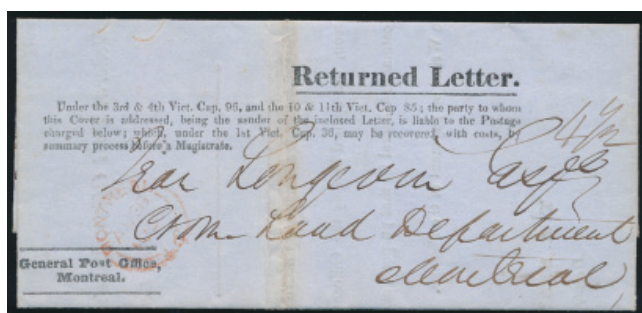 Returned Letter.
Under the 3rd & 4th Vict. Cap. 96, and the 10 & 11th Vict. Cap 85; the party to whom
this Cover is addressed, being the sender of the inclosed Letter, is liable to the Postage
charged below; which, under the 1st Vict. Cap. 36, may be recovered with costs, by
summary process before a Magistrate.
4½
Crown Land Department
Montreal
General Post Office,
Montreal.